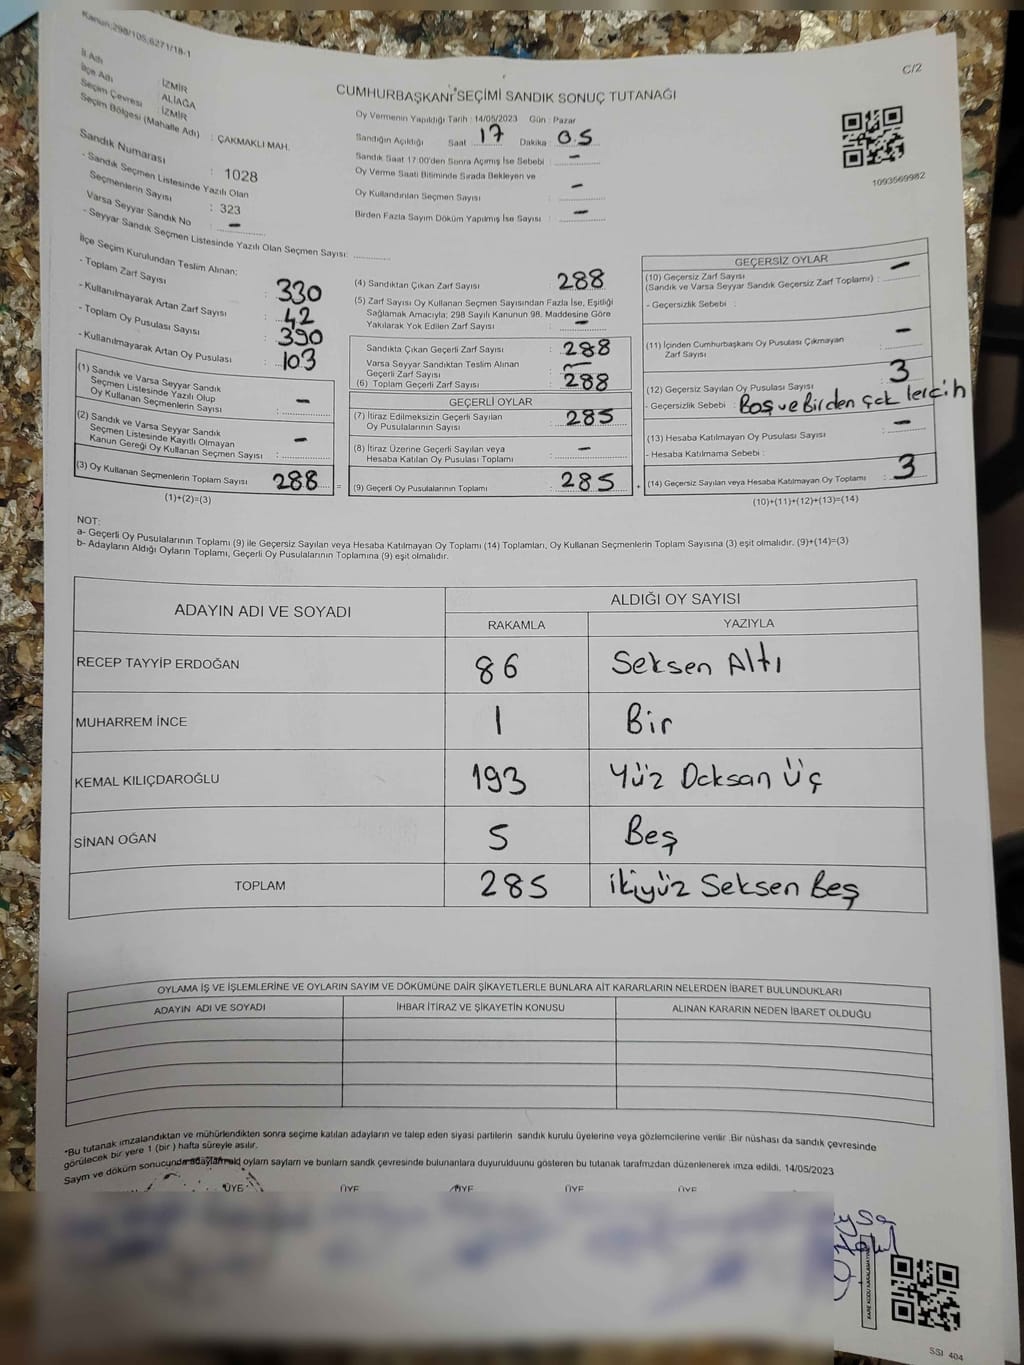 Kanun;298/105,6271/18-1
C/2
İl Adı : İZMİR
İlçe Adı : ALİAĞA
Seçim Çevresi : İZMİR
Seçim Bölgesi (Mahalle Adı) : ÇAKMAKLI MAH.
Sandık Numarası : 1028
- Sandık Seçmen Listesinde Yazılı Olan
Seçmenlerin Sayısı : 323
Varsa Seyyar Sandık No : -
- Seyyar Sandık Seçmen Listesinde Yazılı Olan Seçmen Sayısı: ............
CUMHURBAŞKANI SEÇİMİ SANDIK SONUÇ TUTANAĞI
Oy Vermenin Yapıldığı Tarih : 14/05/2023 Gün : Pazar
Sandığın Açıldığı Saat 17 Dakika 05
Sandık Saat 17:00'den Sonra Açılmış İse Sebebi : -
Oy Verme Saati Bitiminde Sırada Bekleyen ve
Oy Kullandırılan Seçmen Sayısı : -
Birden Fazla Sayım Döküm Yapılmış İse Sayısı : -
1093569982
İlçe Seçim Kurulundan Teslim Alınan:
- Toplam Zarf Sayısı : 330
- Kullanılmayarak Artan Zarf Sayısı : 42
- Toplam Oy Pusulası Sayısı : 390
- Kullanılmayarak Artan Oy Pusulası : 103
(1) Sandık ve Varsa Seyyar Sandık
Seçmen Listesinde Yazılı Olup
Oy Kullanan Seçmenlerin Sayısı : -
(2) Sandık ve Varsa Seyyar Sandık
Seçmen Listesinde Kayıtlı Olmayan
Kanun Gereği Oy Kullanan Seçmen Sayısı : -
(3) Oy Kullanan Seçmenlerin Toplam Sayısı 288
(1)+(2)=(3)
=
(4) Sandıktan Çıkan Zarf Sayısı : 288
(5) Zarf Sayısı Oy Kullanan Seçmen Sayısından Fazla İse, Eşitliği
Sağlamak Amacıyla; 298 Sayılı Kanunun 98. Maddesine Göre
Yakılarak Yok Edilen Zarf Sayısı : -
Sandıkta Çıkan Geçerli Zarf Sayısı : 288
Varsa Seyyar Sandıktan Teslim Alınan
Geçerli Zarf Sayısı : -
(6) Toplam Geçerli Zarf Sayısı : 288
GEÇERLİ OYLAR
(7) İtiraz Edilmeksizin Geçerli Sayılan
Oy Pusulalarının Sayısı : 285
(8) İtiraz Üzerine Geçerli Sayılan veya
Hesaba Katılan Oy Pusulası Toplamı : -
(9) Geçerli Oy Pusulalarının Toplamı : 285
+
GEÇERSİZ OYLAR
(10) Geçersiz Zarf Sayısı
(Sandık ve Varsa Seyyar Sandık Geçersiz Zarf Toplamı) : -
- Geçersizlik Sebebi :
(11) İçinden Cumhurbaşkanı Oy Pusulası Çıkmayan
Zarf Sayısı : -
(12) Geçersiz Sayılan Oy Pusulası Sayısı : 3
- Geçersizlik Sebebi : Boş ve Birden Çok tercih
(13) Hesaba Katılmayan Oy Pusulası Sayısı : -
- Hesaba Katılmama Sebebi :
(14) Geçersiz Sayılan veya Hesaba Katılmayan Oy Toplamı : 3
(10)+(11)+(12)+(13)=(14)
NOT:
a- Geçerli Oy Pusulalarının Toplamı (9) ile Geçersiz Sayılan veya Hesaba Katılmayan Oy Toplamı (14) Toplamları, Oy Kullanan Seçmenlerin Toplam Sayısına (3) eşit olmalıdır. (9)+(14)=(3)
b- Adayların Aldığı Oyların Toplamı, Geçerli Oy Pusulalarının Toplamına (9) eşit olmalıdır.
ADAYIN ADI VE SOYADI
ALDIĞI OY SAYISI
RAKAMLA YAZIYLA
RECEP TAYYİP ERDOĞAN 86 Seksen Altı
MUHARREM İNCE 1 Bir
KEMAL KILIÇDAROĞLU 193 Yüz Doksan Üç
SİNAN OĞAN 5 Beş
TOPLAM 285 ikiyüz Seksen Beş
OYLAMA İŞ VE İŞLEMLERİNE VE OYLARIN SAYIM VE DÖKÜMÜNE DAİR ŞİKAYETLERLE BUNLARA AİT KARARLARIN NELERDEN İBARET BULUNDUKLARI
ADAYIN ADI VE SOYADI İHBAR İTİRAZ VE ŞİKAYETİN KONUSU ALINAN KARARIN NEDEN İBARET OLDUĞU
*Bu tutanak imzalandıktan ve mühürlendikten sonra seçime katılan adayların ve talep eden siyasi partilerin sandık kurulu üyelerine veya gözlemcilerine verilir .Bir nüshası da sandık çevresinde
görülecek bir yere 1 (bir ) hafta süreyle asılır.
Sayım ve döküm sonucunda adayların oyların sayların ve bunların sandık çevresinde bulunanlara duyurulduunu gösteren bu tutanak tarafımzdan düzenlenerek imza edildi. 14/05/2023
ÜYE ÜYE ÜYE ÜYE ÜYE
KARE KODU KARALAMAYINIZ
SSI 404